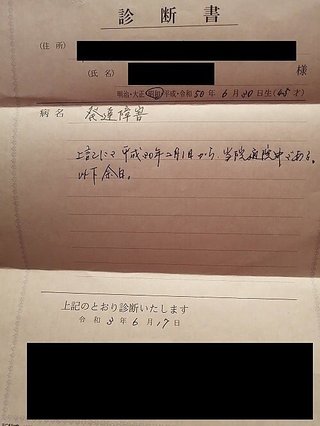 診断書
（住所）
（氏名）　様
明治・大正・昭和・平成・令和 50年 6月 30日生（45才）
病名　発達障害
上記にて平成30年2月1日から、当院通院中である。
以下余白。
上記のとおり診断いたします
令和 3年 6月 17日